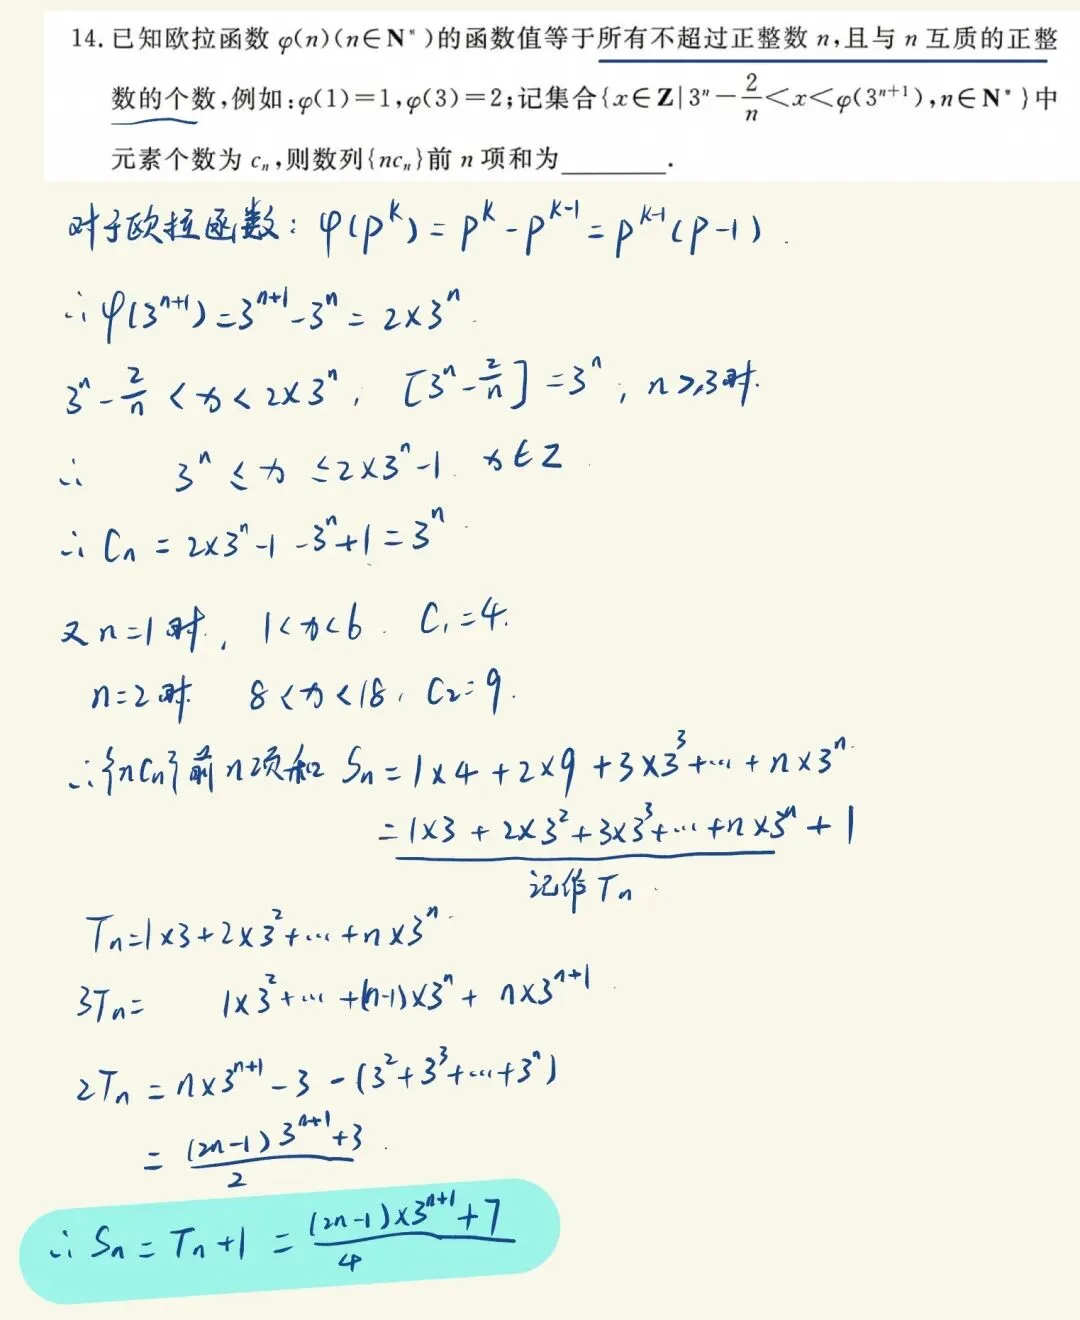 14. 已知欧拉函数 φ(n)(n∈N*)的函数值等于所有不超过正整数 n,且与 n 互质的正整
数的个数,例如:φ(1)=1,φ(3)=2;记集合{x∈Z|3ⁿ-2/n<x<φ(3ⁿ⁺¹),n∈N*}中
元素个数为 cₙ,则数列{ncₙ}前 n 项和为________.
对于欧拉函数: φ(pᵏ) = pᵏ - pᵏ⁻¹ = pᵏ⁻¹(p-1).
∴ φ(3ⁿ⁺¹) = 3ⁿ⁺¹ - 3ⁿ = 2×3ⁿ.
3ⁿ - 2/n < x < 2×3ⁿ, [3ⁿ - 2/n] = 3ⁿ, n≥3时.
∴ 3ⁿ ≤ x ≤ 2×3ⁿ-1. x∈Z.
∴ Cₙ = 2×3ⁿ-1-3ⁿ+1 = 3ⁿ.
又 n=1时, 1<x<6. C₁=4.
n=2时. 8<x<18, C₂=9.
∴{nCₙ}前n项和 Sₙ = 1×4 + 2×9 + 3×3³+…+ n×3ⁿ.
= 1×3 + 2×3² + 3×3³+…+n×3ⁿ + 1
记作 Tₙ.
Tₙ=1×3+2×3²+…+n×3ⁿ.
3Tₙ= 1×3²+…+(n-1)×3ⁿ + n×3ⁿ⁺¹.
2Tₙ = n×3ⁿ⁺¹ - 3 - (3²+3³+…+3ⁿ)
= ((2n-1)3ⁿ⁺¹+3)/2.
∴ Sₙ = Tₙ+1 = ((2n-1)×3ⁿ⁺¹+7)/4